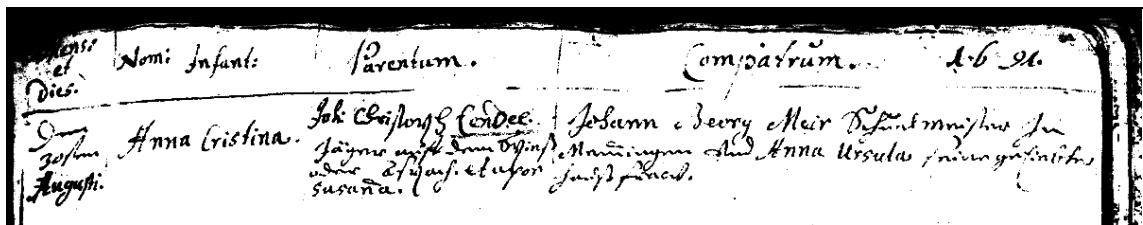 Mensis et Dies. Nom: Infant: Parentum. Compatrum. 1691.
Den 20sten Augusti. Anna Cristina.
Joh: Christoph Cendel.
Jäger auf dem
oder et uxor
Susaña.
Johann Georg Meir Schuelmeister In
Mem̃ingen Und Anna Ursula seine geliebte
haußfraw.